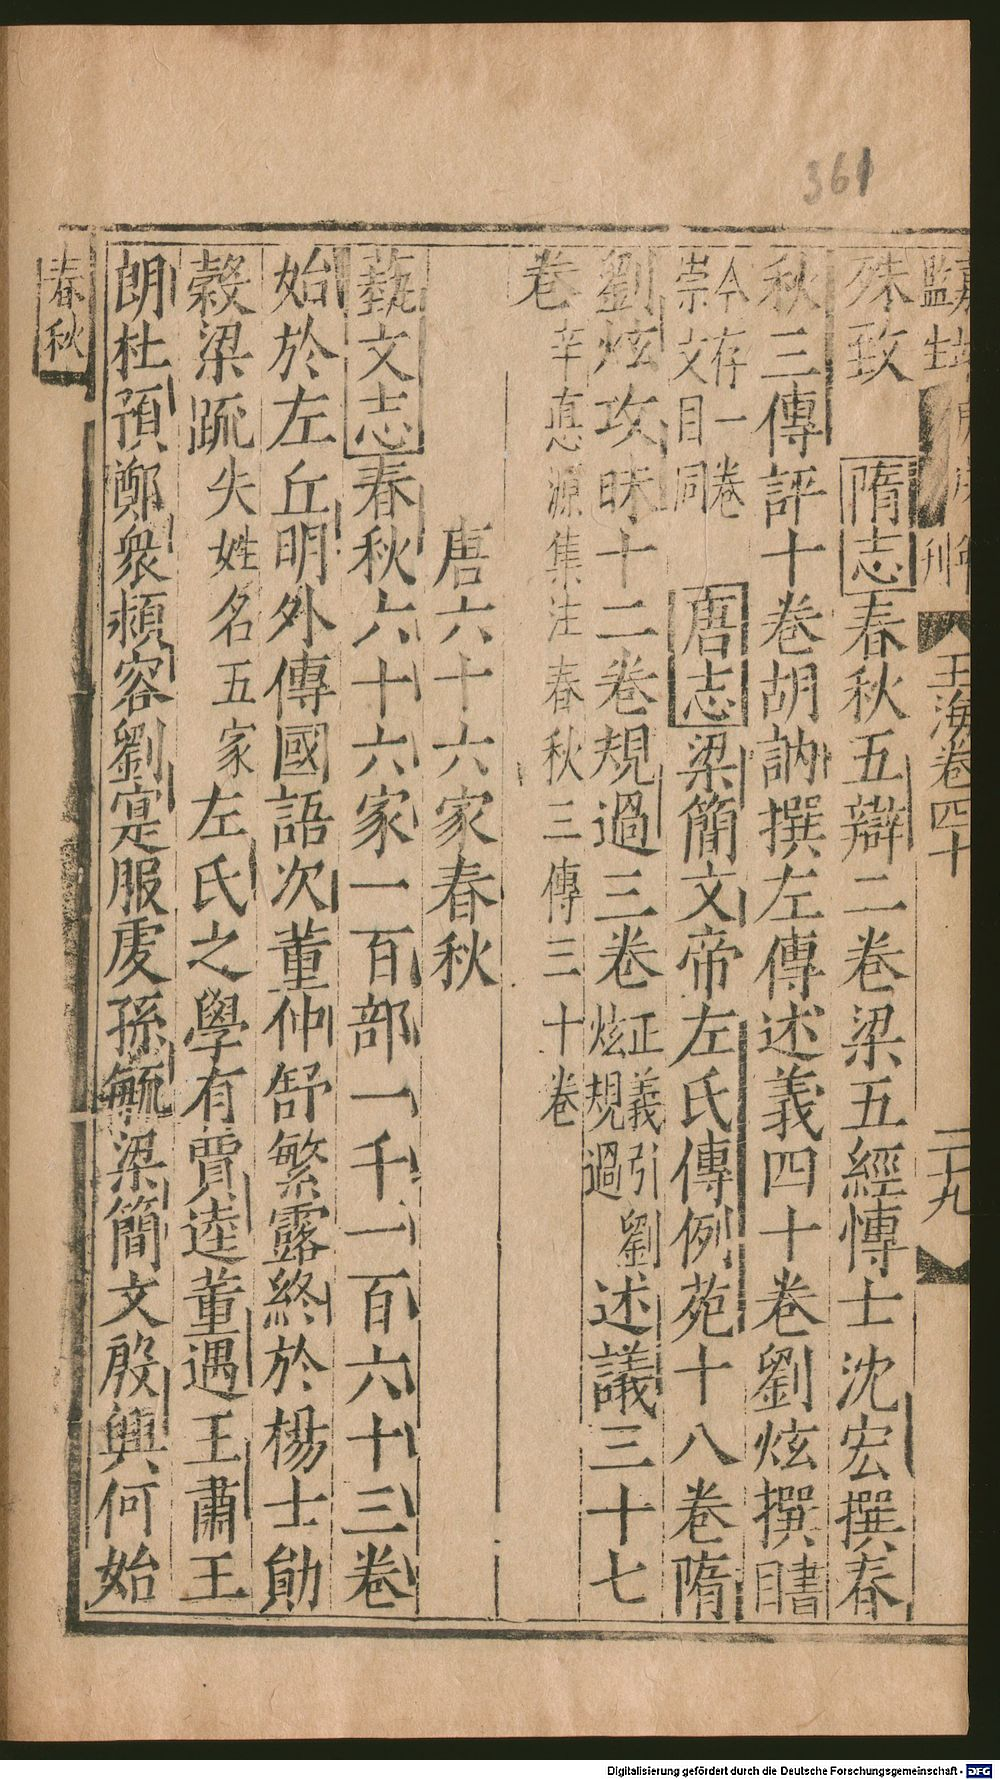 361
監生 刊 玉海卷四十 二十九
殊致 隋志春秋五辯二卷梁五經博士沈宏撰春
秋三傳評十卷胡訥撰左傳述義四十卷劉炫撰書目
今存一卷崇文目同 唐志梁簡文帝左氏傳例苑十八卷隋
劉炫攻昧十二卷規過三卷正義引劉炫規過述議三十七
卷辛悳源集注春秋三傳三十卷
唐六十六家春秋
藝文志春秋六十六家一百部一千一百六十三卷
始於左丘明外傳國語次董仲舒繁露終於楊士勛
榖梁疏失姓名五家左氏之學有賈逵董遇王肅王
朗杜預鄭衆潁容劉寔服虔孫毓梁簡文殷興何始
春秋
Digitalisierung gefördert durch die Deutsche Forschungsgemeinschaft - DFG